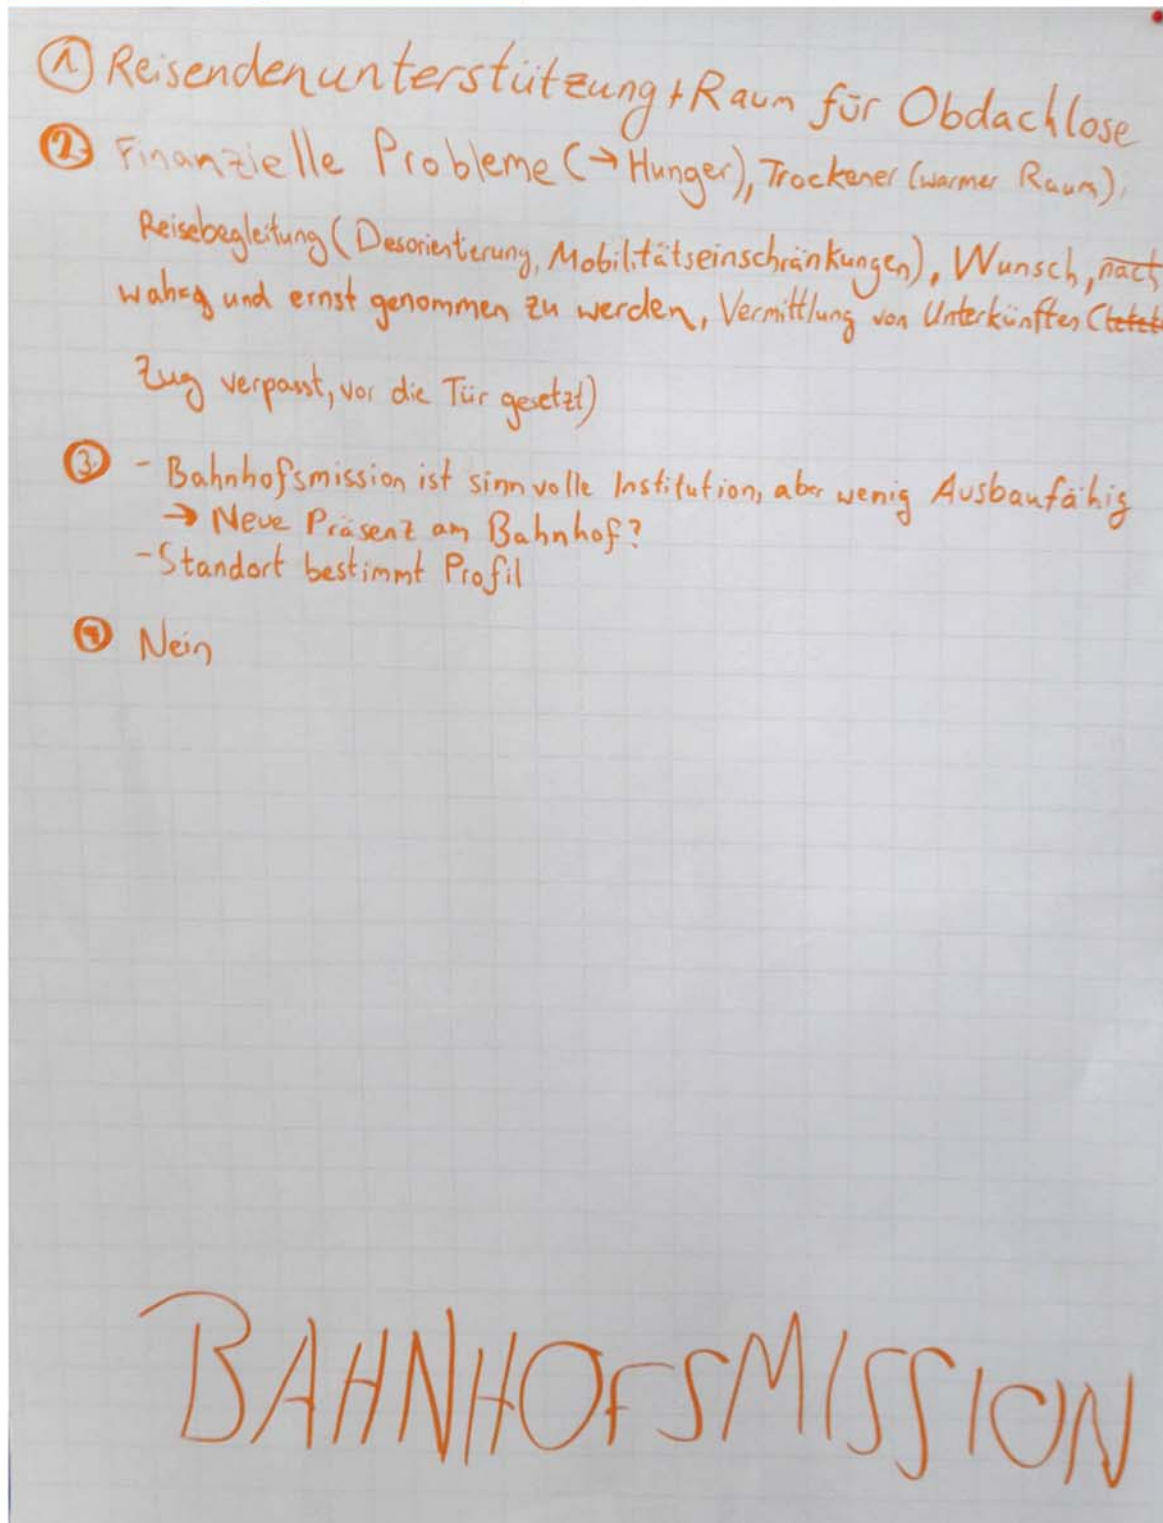 ① Reisendenunterstützung + Raum für Obdachlose
② Finanzielle Probleme (→ Hunger), Trockener (warmer Raum),
Reisebegleitung (Desorientierung, Mobilitätseinschränkungen), Wunsch,
wahr und ernst genommen zu werden, Vermittlung von Unterkünften (
Zug verpasst, vor die Tür gesetzt)
③ - Bahnhofsmission ist sinnvolle Institution, aber wenig Ausbaufähig
→ Neue Präsenz am Bahnhof?
- Standort bestimmt Profil
④ Nein
BAHNHOFSMISSION